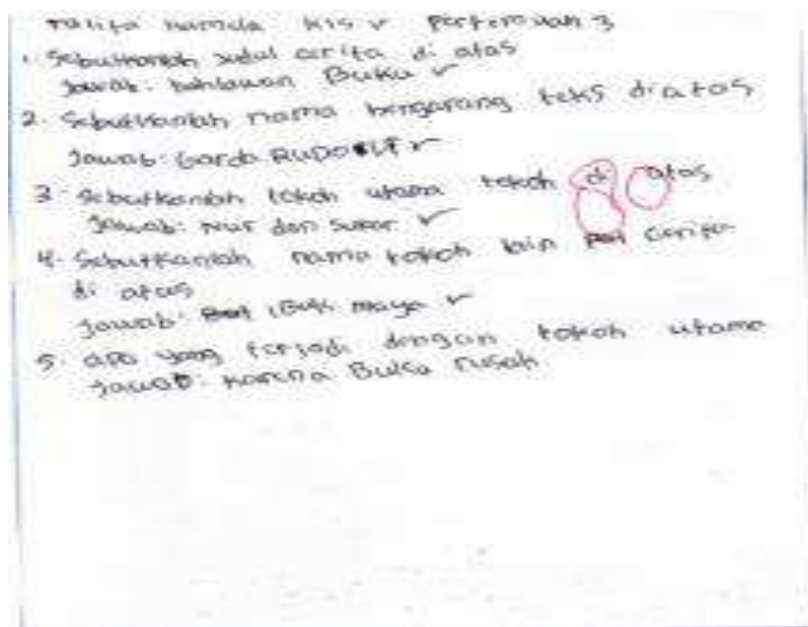 Kls V Pertemuan 3
1. Sebutkanlah Judul cerita di atas
Jawab: Pahlawan Buku
2. Sebutkanlah nama Pengarang teks diatas
Jawab: Garda
3. Sebutkanlah tokoh utama tokoh di atas
Jawab: Nur dan
4. Sebutkanlah nama tokoh lain cerita
di atas
Jawab: maya
5. apa yang terjadi dengan tokoh utama
Jawab: Karena Buku rusak